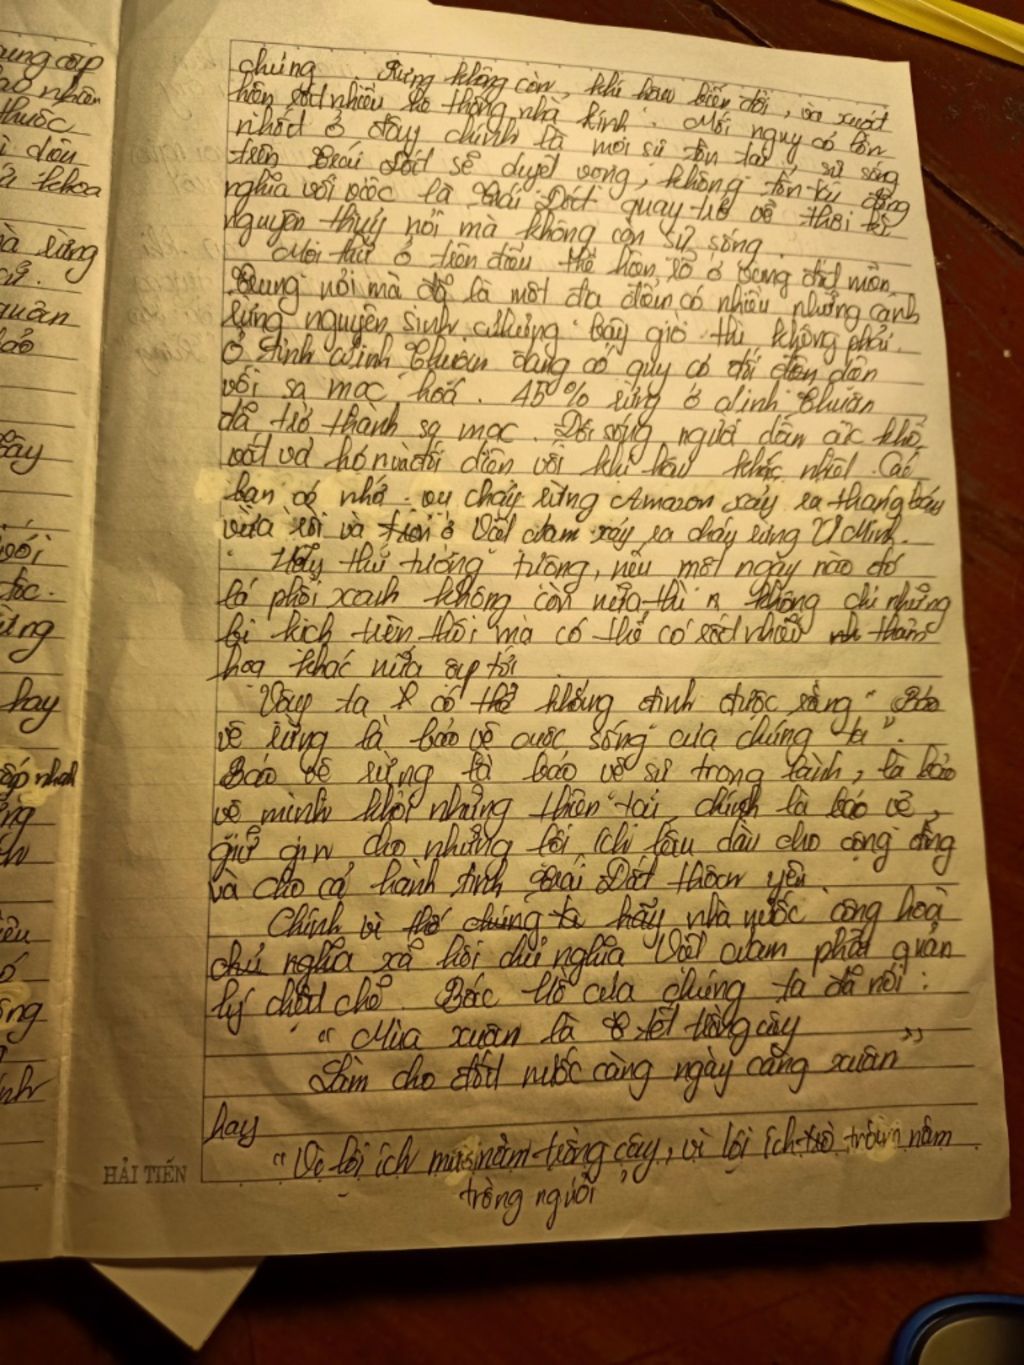 ung cấp
thuốc
khoa
rừng
quân
bảo
Đây
với
tộc.
hay
ống
chúng Rừng không còn, khí hậu biến đổi, sẽ xuất
hiện rất nhiều lỗ thông nhà kính. Mối nguy cơ lớn
nhất ở đây chính là mọi sự tồn tại, sự sống
trên Trái Đất sẽ duyệt vong, không tồn tại đồng
nghĩa với việc là Trái Đất quay trở về thời kì
nguyên thuỷ nơi mà không còn sự sống
Mọi thứ ở trên đều thể hiện rõ ở vùng đất miền
Trung nơi mà đã là một địa điểm có nhiều những cánh
rừng nguyên sinh nhưng bây giờ thì không phải.
Ở tỉnh Ninh Thuận đang có guy cơ đối diện dần
với sa mạc hoá. 45% rừng ở Ninh Thuận
đã trở thành sa mạc. Đời sống người dân cực khổ
vất vả họ đối diện với khí hậu khắc nhiệt. Các
bạn có nhớ vụ cháy rừng Amazon xảy ra tháng bảy
vừa rồi và ở Việt Nam xảy ra cháy rừng U Minh.
Hãy thử tưởng tượng, nếu một ngày nào đó
lá phổi xanh không còn nữa thì không chỉ những
bi kịch trên thôi mà có thể có rất nhiều thảm
hoạ khác nữa ập tới
Vậy ta có thể khẳng định được rằng "Bảo
vệ rừng là bảo vệ cuộc sống của chúng ta".
Bảo vệ rừng là bảo vệ sự trong lành, là bảo
vệ mình khỏi những thiên tai chính là bảo vệ,
giữ gìn cho những lợi ích lâu dài cho cộng đồng
và cho cả hành tinh Trái Đất thân yêu
Chính vì thế chúng ta hãy nhà nước cộng hoà
chủ nghĩa xã hội chủ nghĩa Việt Nam phải quản
lý chặt chẽ. Bác Hồ của chúng ta đã nói:
"Mùa xuân là tết trồng cây
Làm cho đất nước càng ngày càng xuân"
hay
"Vì lợi ích mười năm trồng cây, vì lợi ích trăm năm
trồng người
HẢI TIẾN